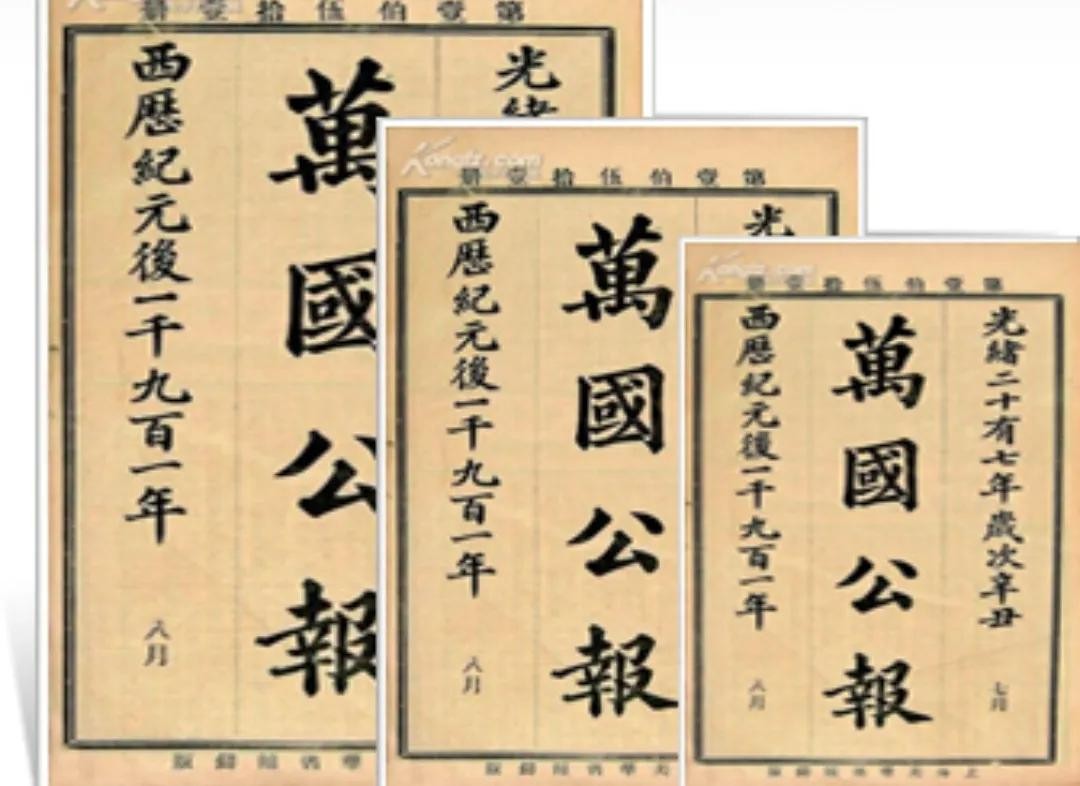 第壹伯伍拾壹冊
光緒
萬國公報
西曆紀元後一千九百一年
八月
第壹伯伍拾壹冊
光
萬國公報
西曆紀元後一千九百一年
八月
第壹伯伍拾壹冊
光緒二十有七年歲次辛丑
七月
萬國公報
西曆紀元後一千九百一年
八月
上海美華書館